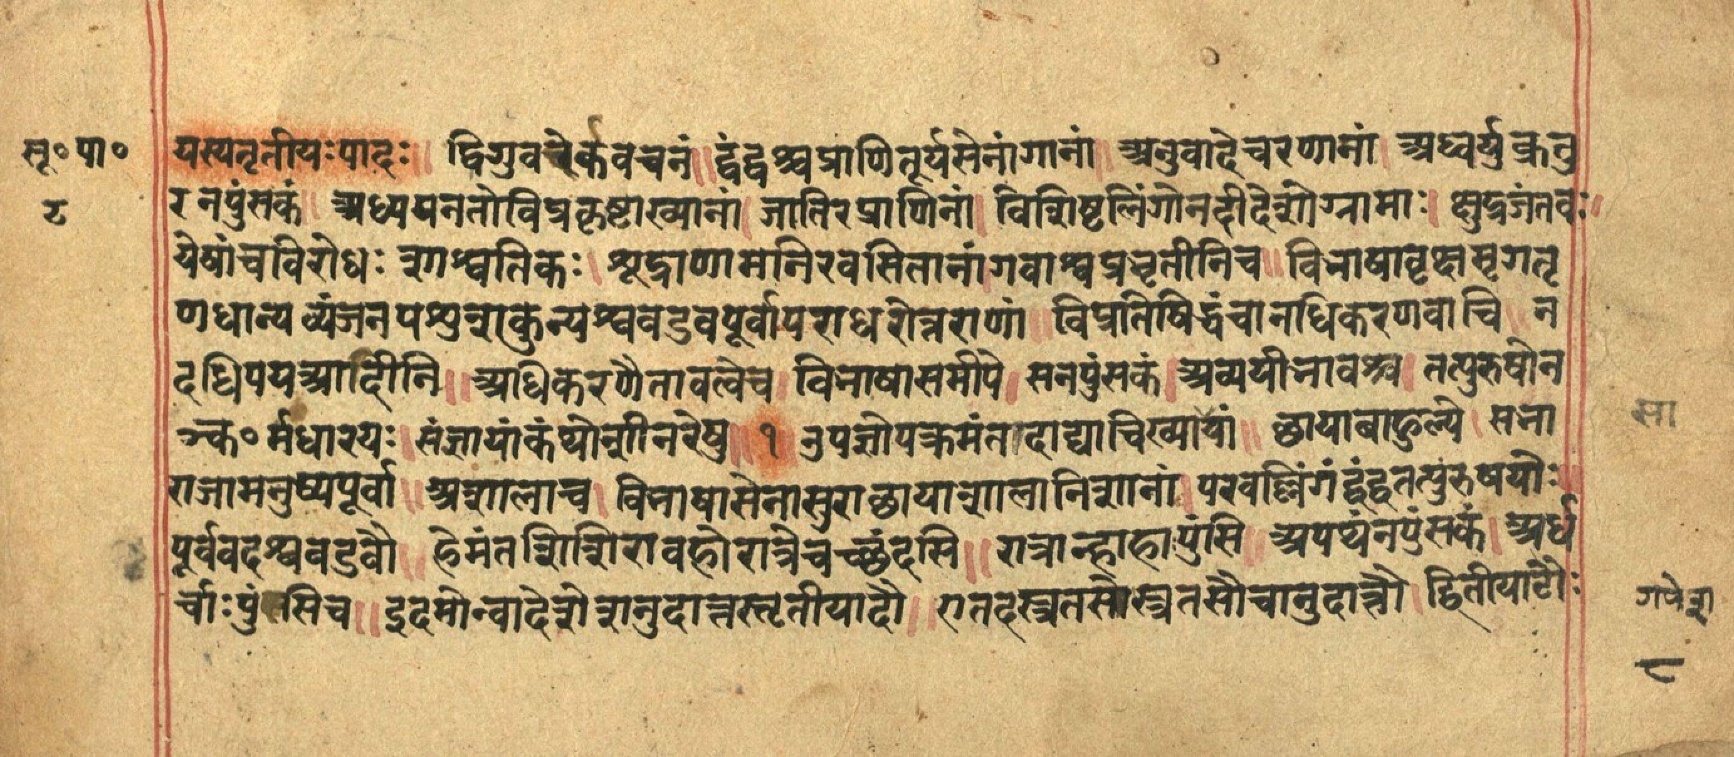 सू॰पा॰
८
यस्यतृतीयःपादः॥ द्विगुवरेकवचनं॥द्वंद्वश्चप्राणितूर्यसेनांगानां॥अनुवादेचरणानां।अध्वर्युक्रतु
रनपुंसकं॥अध्ययनतोविप्रकृष्टाख्यानां।जातिरप्राणिनां।विशिष्टलिंगोनदीदेशोग्रामाः।क्षुद्रजंतवः॥
येषांचविरोधः शाश्वतिकः।शूद्राणामनिरवसितानां।गवाश्वप्रभृतीनिच॥विभाषावृक्षमृगतृ
णधान्यव्यंजनपशुशकुन्यश्ववडवपूर्वापराधरोत्तराणां॥विप्रतिषिद्धंचानधिकरणवाचि॥न
दधिपयआदीनि॥अधिकरणैतावत्वेच।विभाषासमीपे।सनपुंसकं।अव्ययीभावश्च।तत्पुरुषोन
ञ्क॰र्मधारयः।संज्ञायांकंथोशीनरेषु॥१ उपज्ञोपक्रमंतदाद्याचिख्यायां॥छायाबाहुल्ये।सभा
राजामनुष्यपूर्वा॥अशालाच।विभाषासेनासुराछायाशालानिशानां।परवल्लिंगंद्वंद्वतत्पुरुषयोः॥
पूर्ववदश्ववडवौ॥हेमंतशिशिरावहोरात्रेचच्छंदसि॥रात्रान्हाहाःपुंसि॥अपथंनपुंसकं।अर्ध
र्चाःपुंसिच॥इदमोन्वादेशेशनुदात्तस्तृतीयादौ॥एतदस्त्रतसोस्त्रतसौचानुदात्तौ।द्वितीयाटौः
सा
गणेश
८